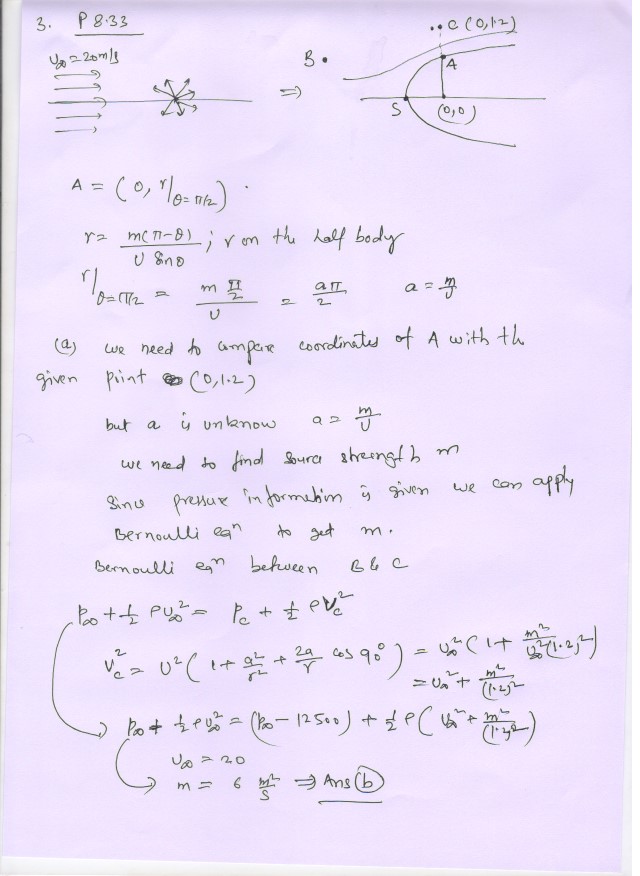 3. P 8.33
U∞ = 20m/s
B •
C (0,1.2)
A
S
(0,0)
A = (0, r|θ=π/2) .
r = m(π-θ) / U Sinθ ; r on the half body
r|θ=π/2 = m π/2 / U = aπ/2    a = m/U
(a) we need to compare coordinates of A with th
given point (0,1.2)
but a is unknow    a = m/U
we need to find source streength m
Since pressure information is given we can apply
Bernoulli eqⁿ to get m.
Bernoulli eqⁿ between B & C
P∞ + ½ ρU∞² = Pc + ½ ρVc²
Vc² = U² (1 + a²/r² + 2a/r cos 90°) = U∞² (1 + m²/U∞²(1.2)²)
= U∞² + m²/(1.2)²
P∞ + ½ ρU∞² = (P∞ - 12500) + ½ ρ (U∞² + m²/(1.2)²)
U∞ = 20
m = 6 m²/S ⇒ Ans (b)